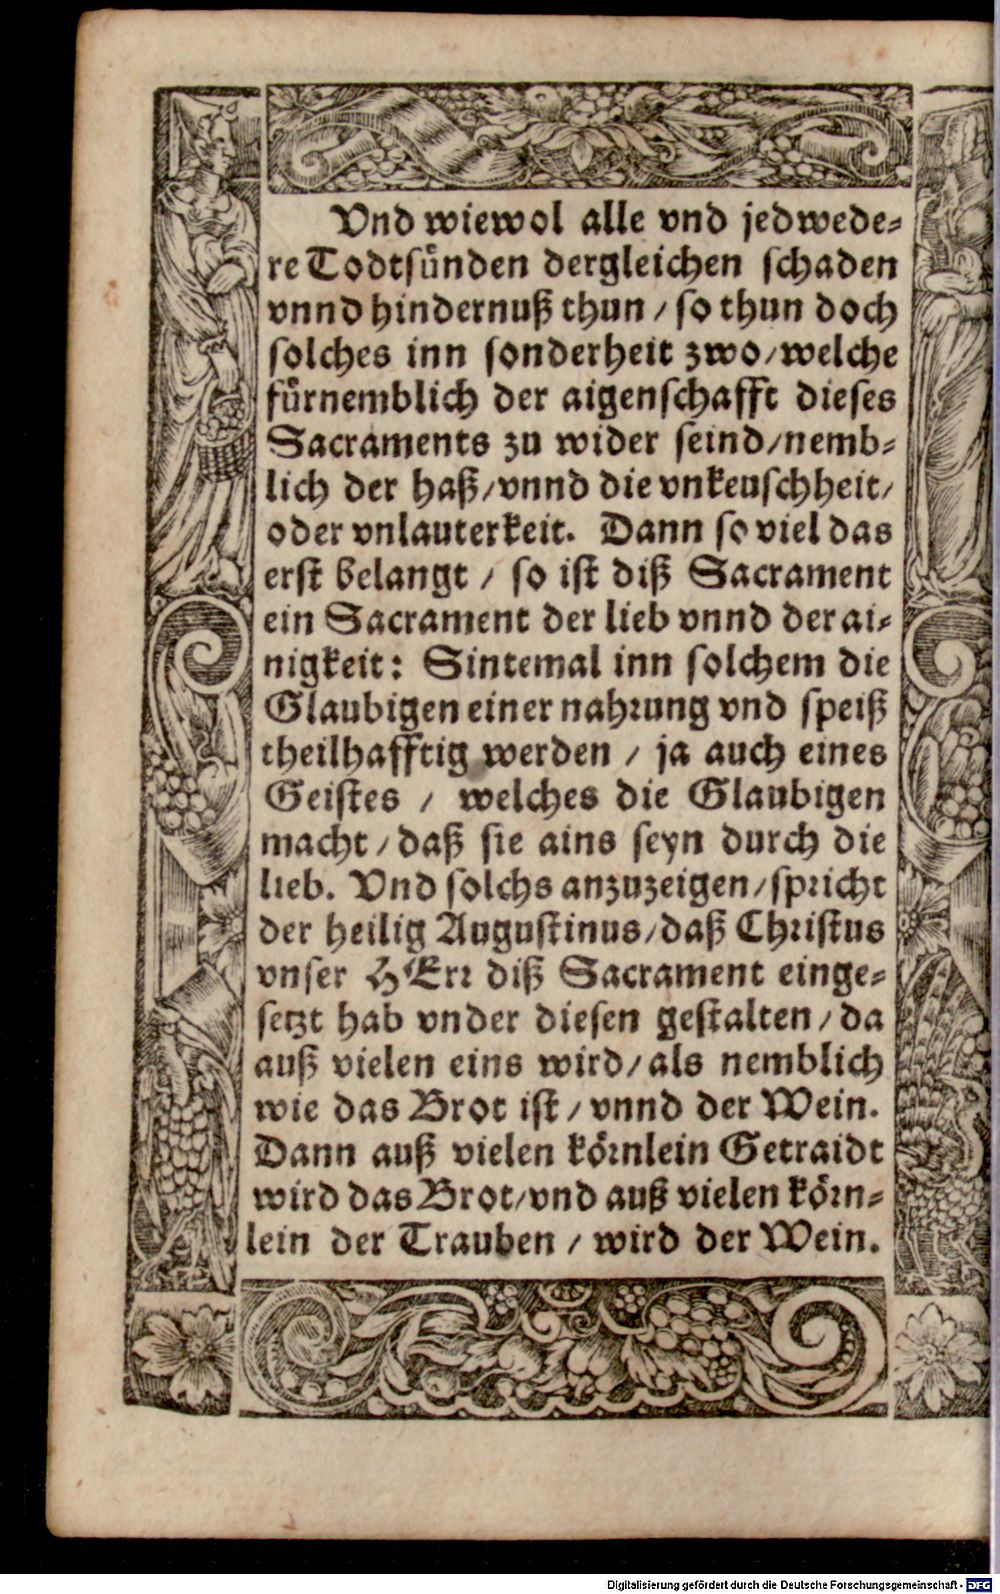 Vnd wiewol alle vnd jedwede-
re Todtsünden dergleichen schaden
vnnd hindernuß thun / so thun doch
solches inn sonderheit zwo / welche
fürnemblich der aigenschafft dieses
Sacraments zu wider seind / nemb-
lich der haß / vnnd die vnkeuschheit /
oder vnlauterkeit. Dann so viel das
erst belangt / so ist diß Sacrament
ein Sacrament der lieb vnnd der ai-
nigkeit: Sintemal inn solchem die
Glaubigen einer nahrung vnd speiß
theilhafftig werden / ja auch eines
Geistes / welches die Glaubigen
macht / daß sie ains seyn durch die
lieb. Vnd solchs anzuzeigen / spricht
der heilig Augustinus / daß Christus
vnser HErr diß Sacrament einge-
setzt hab vnder diesen gestalten / da
auß vielen eins wird / als nemblich
wie das Brot ist / vnnd der Wein.
Dann auß vielen körnlein Getraidt
wird das Brot / vnd auß vielen körn-
lein der Trauben / wird der Wein.
Digitalisierung gefördert durch die Deutsche Forschungsgemeinschaft - DFG